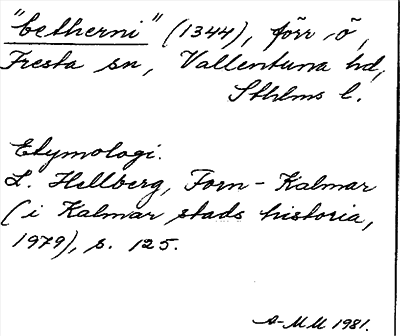 "betherni" (1344), förr ö,
Fresta sn, Vallentuna hd,
Sthlms l.
Etymologi.
L. Hellberg, Forn-Kalmar
(i Kalmar stads historia,
1979), s. 125.
A-MM 1981.